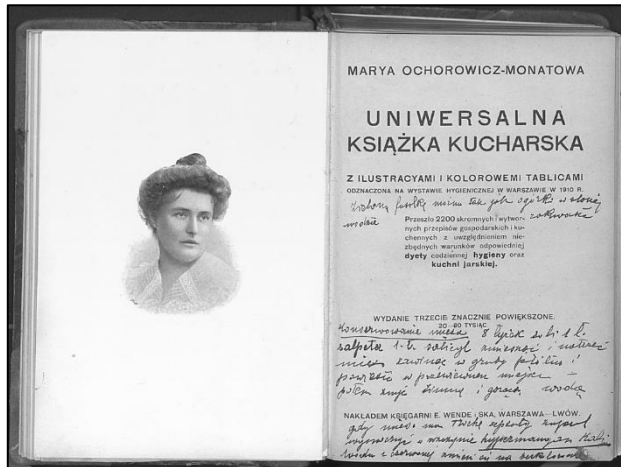 MARYA OCHOROWICZ-MONATOWA
UNIWERSALNA
KSIĄŻKA KUCHARSKA
Z ILUSTRACYAMI I KOLOROWEMI TABLICAMI
ODZNACZONA NA WYSTAWIE HYGIENICZNEJ W WARSZAWIE W 1910 R.
Zieloną fasolkę można tak jak ogórki w słonej
wodzie zakwasić
Przeszło 2200 skromnych i wytwor-
nych przepisów gospodarskich i ku-
chennych z uwzględnieniem nie-
zbędnych warunków odpowiedniej
dyety codziennej hygieny oraz
kuchni jarskiej.
WYDANIE TRZECIE ZNACZNIE POWIĘKSZONE.
20—60 TYSIĄC.
Konserwowanie mięsa 8 łyżek soli 1 ł.
1 ł. salicyl zmieszać i natrzeć
mięso zawinąć w gruby i
powiesić w przewiewnem miejscu
potem zmyć zimną i gorącą wodą
NAKŁADEM KSIĘGARNI E. WENDE i SKA, WARSZAWA—LWÓW.
gdy mięso ma
hypermangan Kali